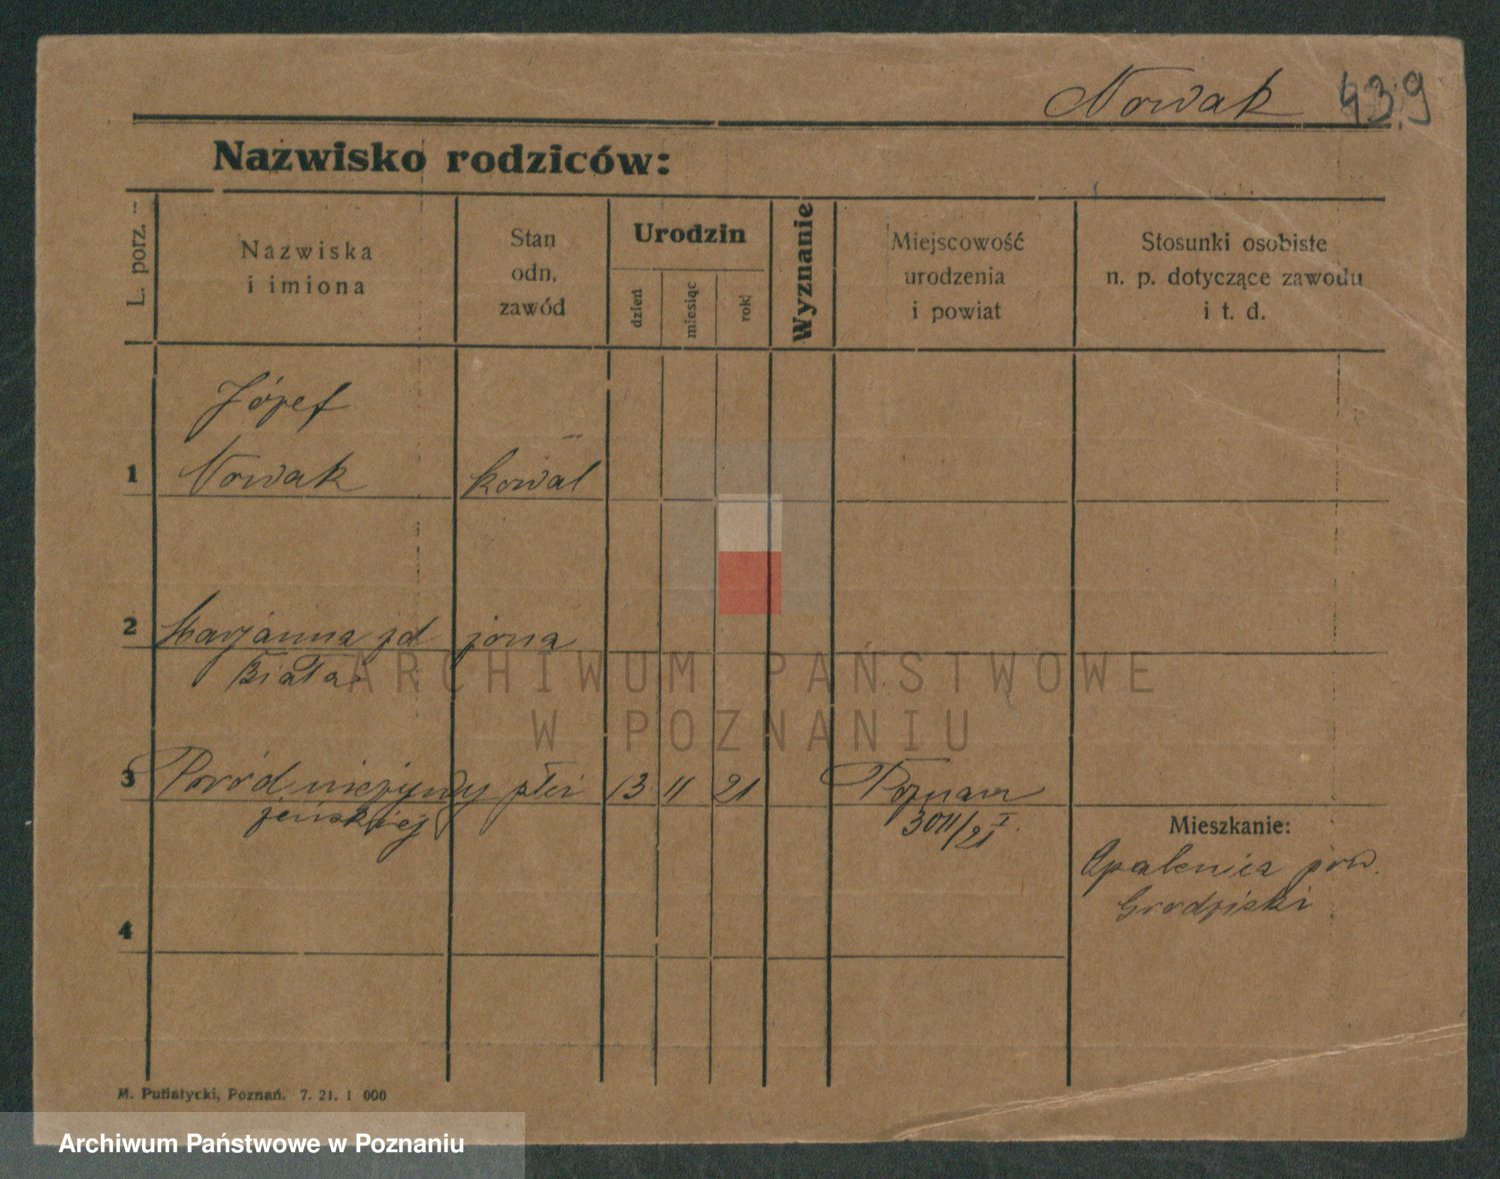 Nowak 439
Nazwisko rodziców:
L. porz.
Nazwiska
i imiona
Stan
odn.
zawód
Urodzin
dzień
miesiąc
rok
Wyznanie
Miejscowość
urodzenia
i powiat
Stosunki osobiste
n. p. dotyczące zawodu
i t. d.
Józef
1 Nowak kowal
2 Marjanna zd żona
Biała
3 Poród nieżywy płci 13 11 21 Poznań
żeńskiej 3011/21 I.
Mieszkanie:
Opalenica pow.
Grodziski
4
M. Putiatycki, Poznań. 7. 21. 1 000
ARCHIWUM PAŃSTWOWE
W POZNANIU
Archiwum Państwowe w Poznaniu